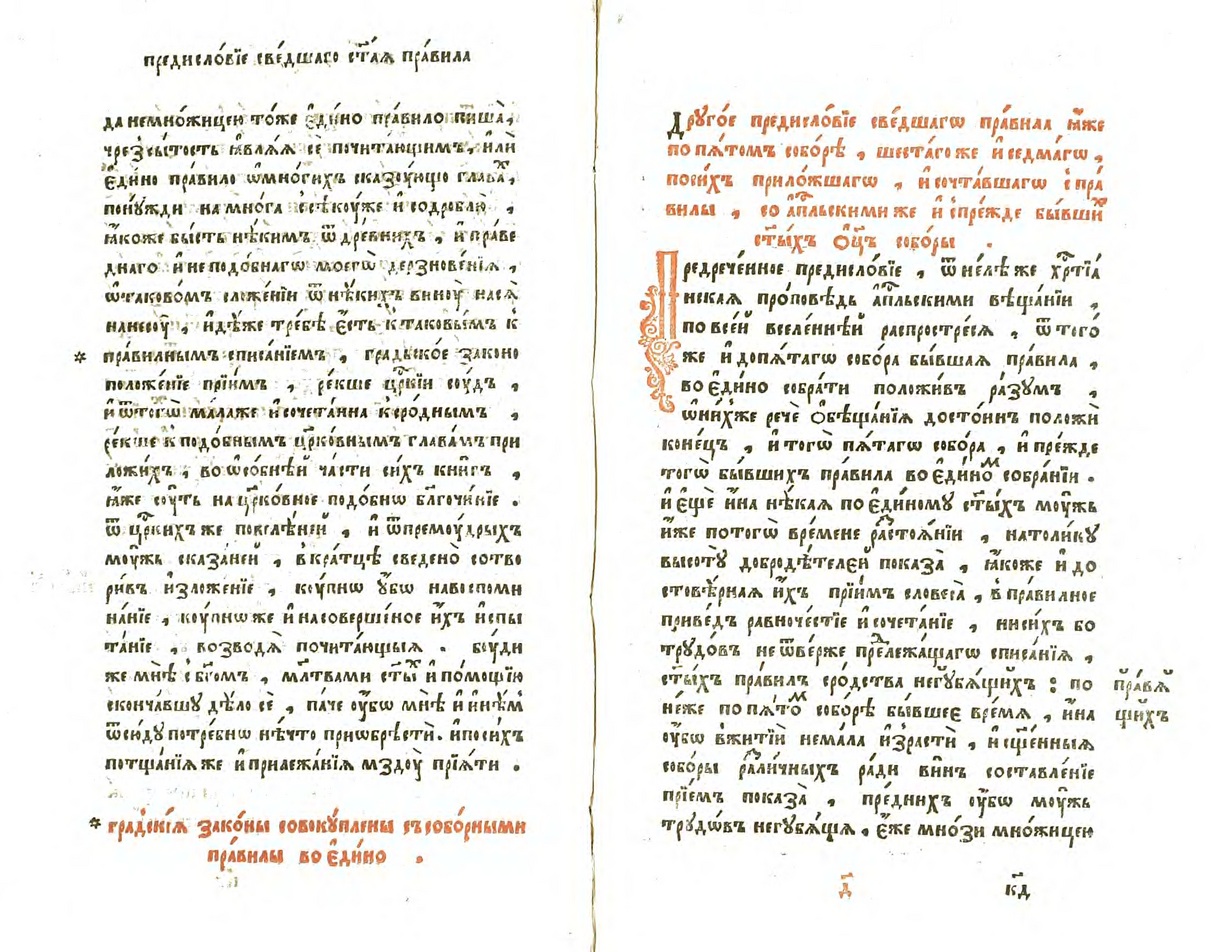 предисло́вїе све́дшаго ст҃а́ѧ пра́вила
да немно́жицею то́же є҆ди́но пра́вило пи́ша,
чрез̾сы́тость ꙗ҆влѧ́ѧ сѐ почита́ющимъ, и҆лѝ
є҆ди́но пра́вило ѡ҆мно́гихъ сказꙋ́ющо глава́х,
пон̾ꙋ́жди на мно́га ссѣкꙋ́же и҆ содроблю̀ ,
ꙗ҆́коже бы́сть нѣ́кимъ ѿ дре́внихъ , и҆ пра́ве
днаго и҆ неподо́бнагѡ моегѡ̀ дерзнове́нїѧ ,
ѡ҆ таково́мъ сложе́нїи ѿ нѣ́кихъ винꙋ̀ на сѧ̀
нанесꙋ̀ , и҆дѣ́же тре́бѣ є҆́сть к таковы́мъ к
* пра́вилнымъ списа́нїемъ , гра́дьское зако́но
положе́нїе прїи́мъ , ре́кше цр҃кїи сꙋ́дъ ,
и҆ ѿтогѡ̀ ма́ла же и҆ сочета́нна к сро́днымъ ,
ре́кше к подо́бнымъ цр҃ко́внымъ глава́мъ при
ложи́хъ , во ѡ҆со́бнѣй ча́сти си́хъ кни́гъ ,
ꙗ҆́же сꙋ́ть на цр҃ко́вное подо́бнѡ бл҃гочи́нїе .
ѿ цр҃кихъ же повелѣ́нїй , и҆ ѿ премꙋ́дрыхъ
мꙋ́жь сказа́нїй , в кра́тцѣ сведено̀ сотво
ри́въ и҆зложе́нїе , кꙋ́пнѡ ᲂу҆́бѡ на воспоми
на́нїе , кꙋ́пнѡ же и҆ на соверше́ное и҆́хъ и҆спы
та́нїе , возводѧ̀ почита́ющыѧ . бꙋ́ди
же мнѣ̀ с бг҃омъ , мл҃твами ст҃ы́х и҆ по́мощїю
сконча́вшꙋ дѣ́ло сѐ , па́че ᲂу҆́бѡ мнѣ̀ и҆ и҆нѣ́м
ѿсю́дꙋ потре́бнѡ нѣ́что приѡбрѣ́сти. и҆ по си́хъ
потща́нїѧ же и҆ прилежа́нїѧ мздꙋ̀ прїѧ́ти .
* гра́дскїѧ зако́ны совокꙋ́плены съ собо́рными
пра́вилы во є҆ди́но .
Дрꙋго́е предисло́вїе све́дшагѡ пра́вила ꙗ҆́же
по пѧ́томъ собо́рѣ , шеста́гоже и҆ седма́гѡ ,
по си́хъ прило́жшагѡ , и҆ сочта́вшагѡ с пра́
вилы , со а҆пⷭ҇льскими же и҆ спре́жде бы́вши́х
ст҃ы́хъ ѻ҆ц҃ъ собо́ры .
Предрече́нное предисло́вїе , ѿ не́лѣ же хрⷭ҇тїа́
нская про́повѣдь а҆пⷭ҇льскими вѣща́нїи ,
по все́й вселе́ннѣй распростре́сѧ , ѿ того́
же и҆ до пѧ́тагѡ собо́ра бы́вшаѧ пра́вила ,
во є҆ди́но собра́ти положи́въ ра́зꙋмъ ,
ѡ҆ ни́хже речѐ ѻ҆бѣща́нїѧ досто́инъ положѝ
коне́цъ , и҆ тогѡ̀ пѧ́тагѡ собо́ра , и҆ пре́жде
тогѡ̀ бы́вшихъ пра́вила во є҆ди́но́м собра́нїи .
и҆ є҆щѐ и҆́на нѣ́кая по є҆ди́номꙋ ст҃ы́хъ мꙋ́жь
и҆́же по тогѡ̀ вре́мене растоѧ́нїи , на толи́кꙋ
высотꙋ̀ добродѣ́телей показа̀ , ꙗ҆́коже и҆ до
стовѣ́рная и҆́хъ прїи́мъ словеса̀ , в пра́вилное
приве́дъ равноче́стїе и҆ сочета́нїе , ни си́хъ бо
трꙋдо́въ не ѿве́рже прⷣележа́щагѡ списа́нїѧ ,
ст҃ы́хъ пра́вилъ сро́дства негꙋбѧ́щихъ : по пра́вѧ
не́же по пѧ́то́м собо́рѣ бы́вшее вре́мѧ , и҆́на щихъ
ᲂу҆́бѡ в житїѝ нема́ла и҆зрастѝ , и҆ сщ҃е́нныѧ
собо́ры разли́чныхъ ра́ди ви́нъ составле́нїе
прїе́мъ показа̀ , пре́днихъ ᲂу҆́бѡ мꙋ́жь
трꙋдѡ́въ негꙋбѧ́щїя , є҆́же мно́зи мно́жицею
д҃ к҃д